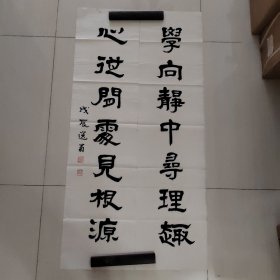 學向靜中尋理趣
心從閒處見根源